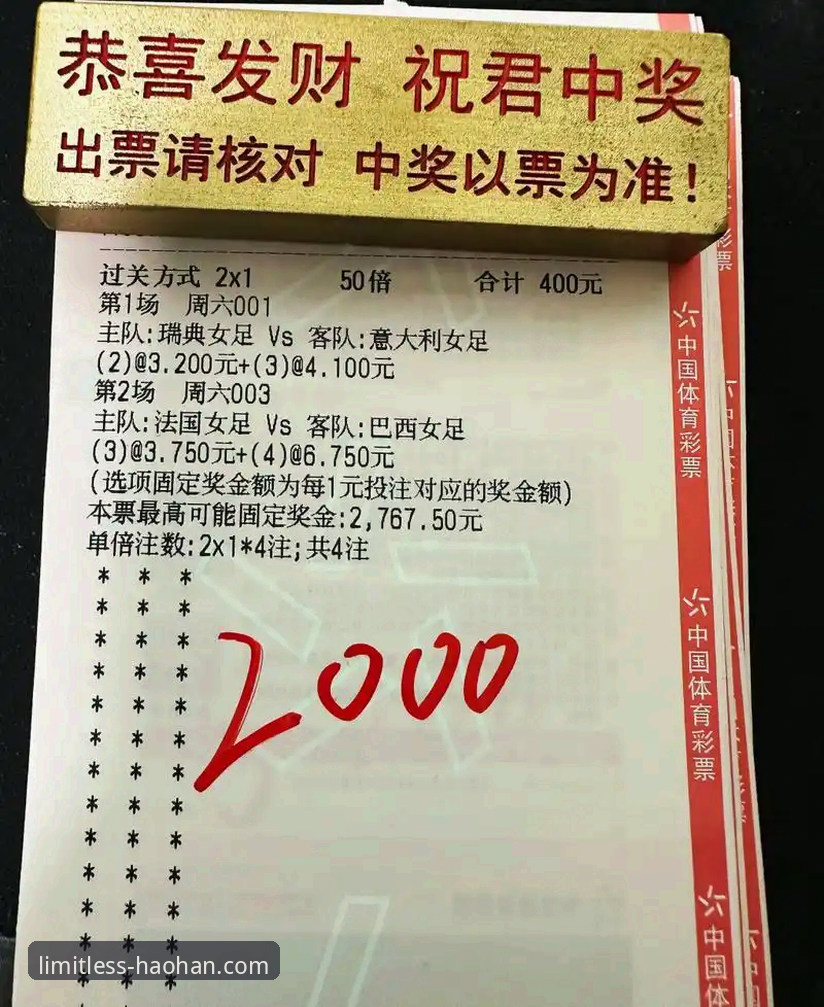 恭喜发财 祝君中奖
出票请核对 中奖以票为准!
过关方式 2x1 50倍 合计 400元
第1场 周六001
主队:瑞典女足 Vs 客队:意大利女足
(2)@3.200元+(3)@4.100元
第2场 周六003
主队:法国女足 Vs 客队:巴西女足
(3)@3.750元+(4)@6.750元
(选项固定奖金额为每1元投注对应的奖金额)
本票最高可能固定奖金:2,767.50元
单倍注数:2x1*4注;共4注
* * *
* * *
* * *
* * *
* * *
* * *
* * *
* * *
* * *
* * *
* * *
* * *
* * *
2000
中国体育彩票
中国体育彩票
中国体
彩票
limitless-haohan.com